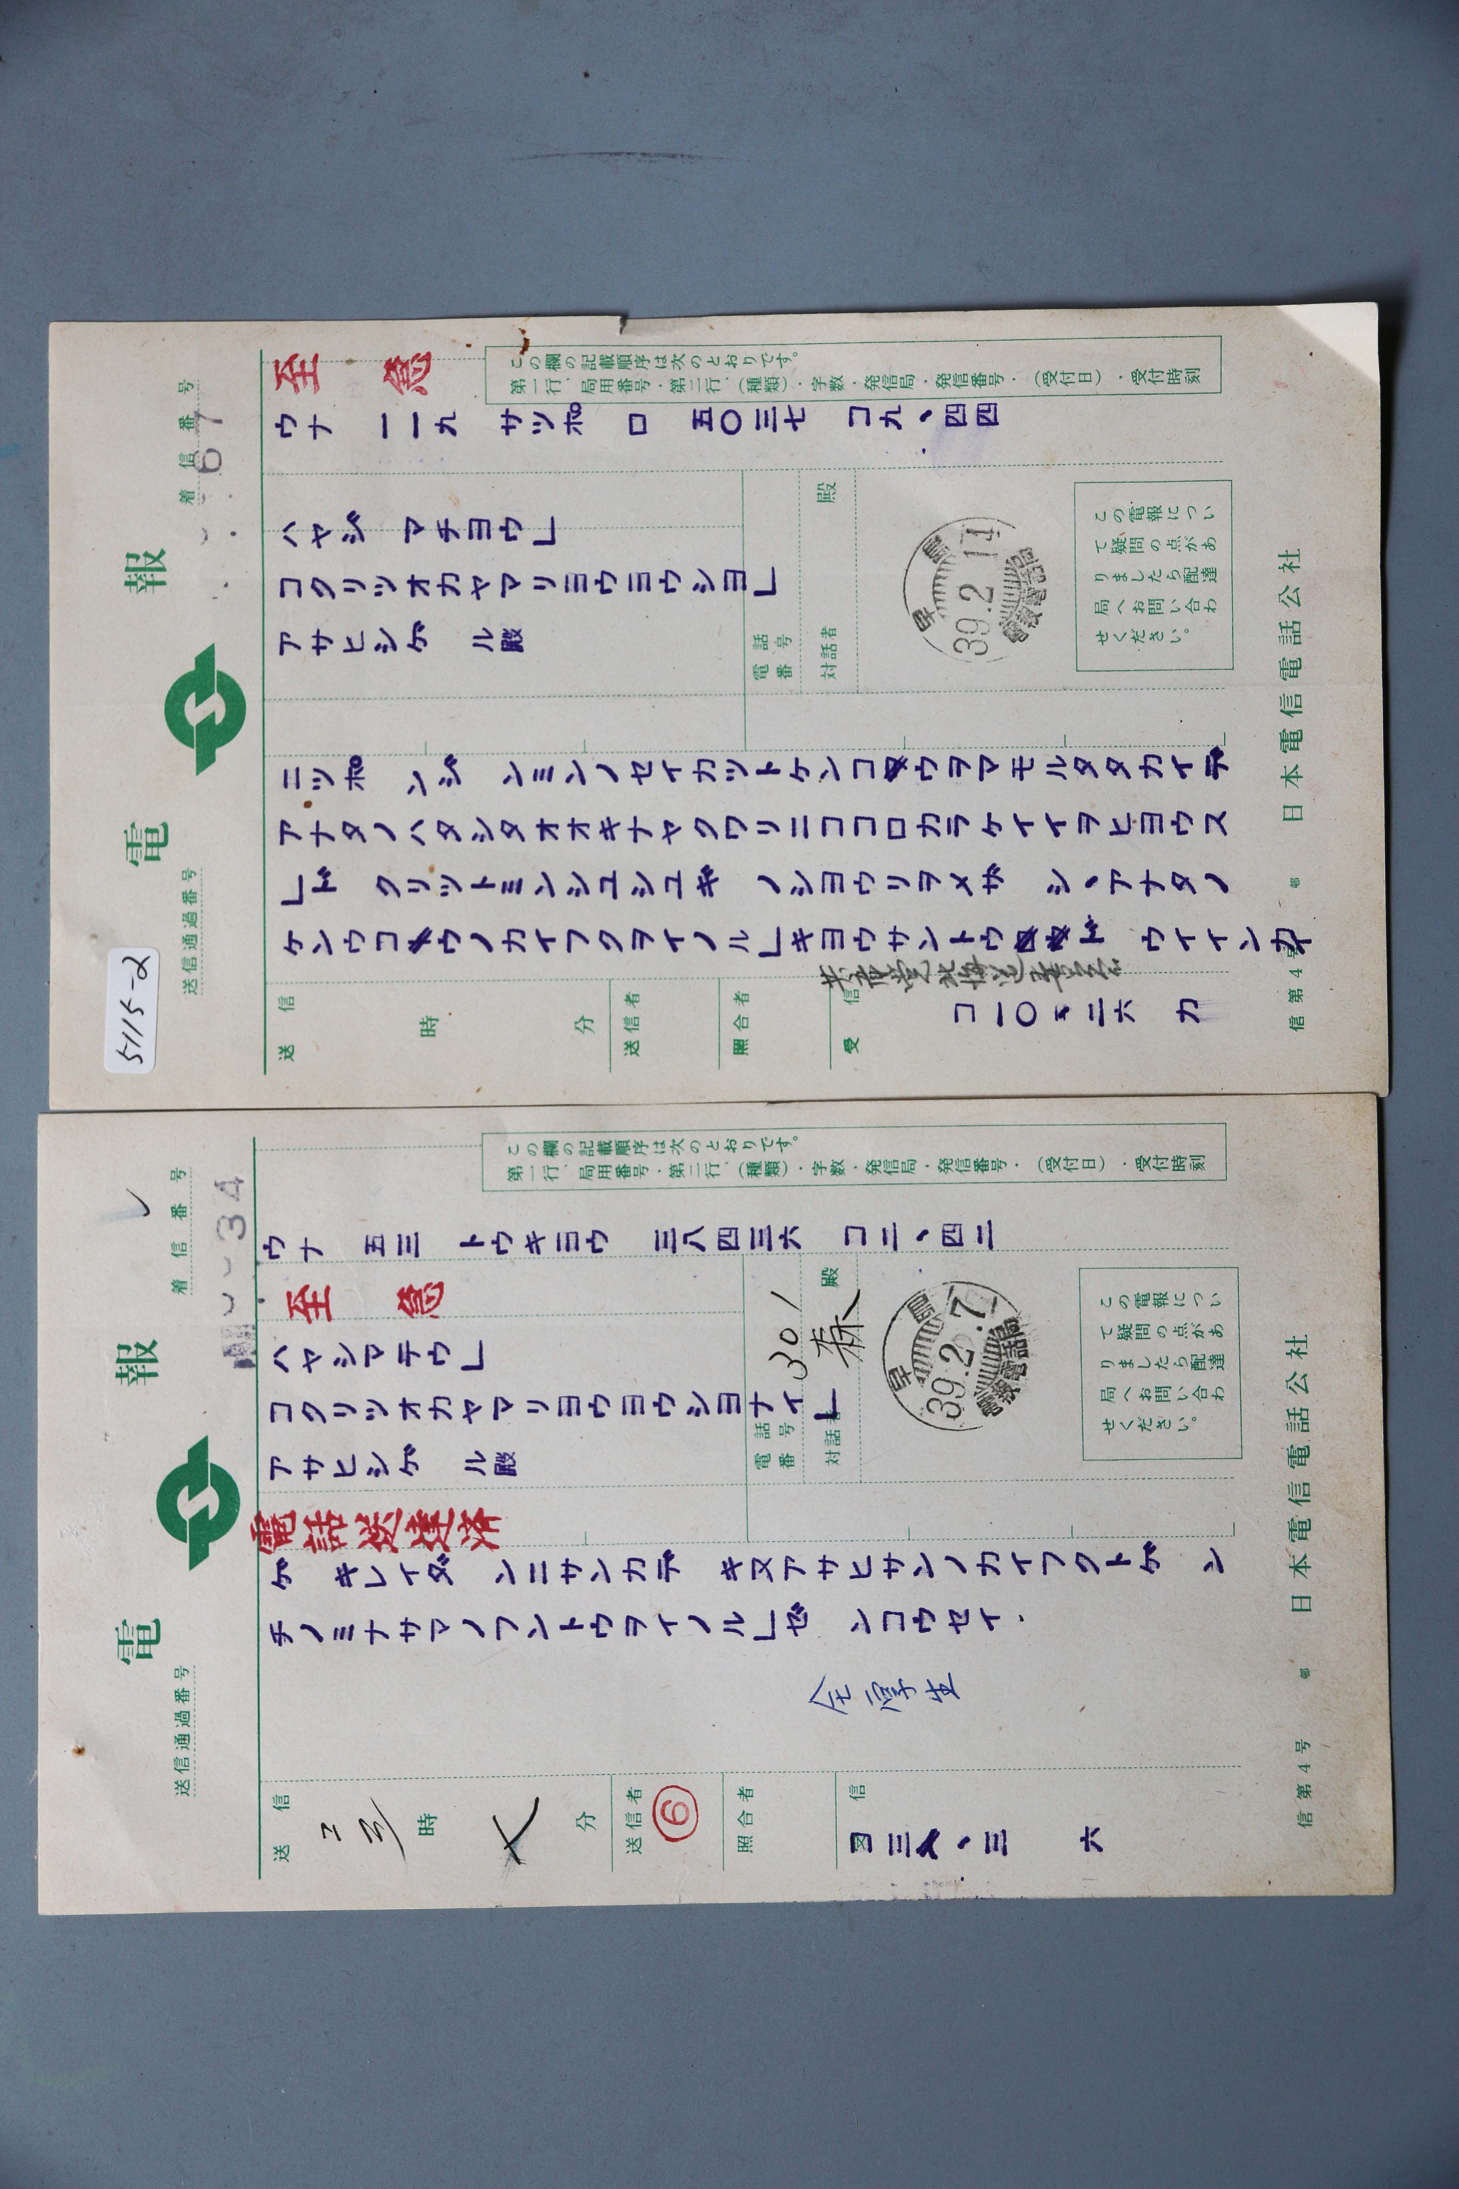 5115-2
電報
送信通過番号
着信番号
67
至急
この欄の記載順序は次のとおりです。
第一行、局用番号・第二行、(種類)・字数・発信局・発信番号・(受付日)・受付時刻
ウナ 一一九 サツポロ 五〇三七 コ九、四四
ハヤシ゛マチヨウ」
コクリツオカヤマリヨウヨウシヨ」
アサヒシゲル殿
電話番号
対話者
殿
早島
39.2.11
電報電話局
この電報につい
て疑問の点があ
りましたら配達
局へお問い合わ
せください。
ニツポンジンミンノセイカツトケンコウヲマモルタタカイデ
アナタノハタシタオオキナヤクワリニココロカラケイイヲヒヨウス
」ドクリツトミンシユシユギノシヨウリヲメザシ、アナタノ
ケンコウノカイフクヲイノル」キヨウサントウドウイインカイ
共産党北海道委員会
送信
時
分
送信者
照合者
受信
コ一〇、二六 カ
信第4号
日本電信電話公社
電報
送信通過番号
着信番号
34
この欄の記載順序は次のとおりです。
第一行、局用番号・第二行、(種類)・字数・発信局・発信番号・(受付日)・受付時刻
ウナ 五三 トウキヨウ 三八四三六 コ二、四二
至急
ハヤシマチウ」
コクリツオカヤマリヨウヨウシヨナイ」
アサヒシゲル殿
電話番号
301
対話者
森
殿
早島
39.2.7
電報電話局
この電報につい
て疑問の点があ
りましたら配達
局へお問い合わ
せください。
電話送達済
ゲキレイダンニサンカデキヌアサヒサンノカイフクトゲン
チノミナサマノフントウヲイノル」ゼンコウセイ.
全厚生
送信
コ3
時
分
送信者
⑥
照合者
信
コ三、三 六
信第4号
日本電信電話公社